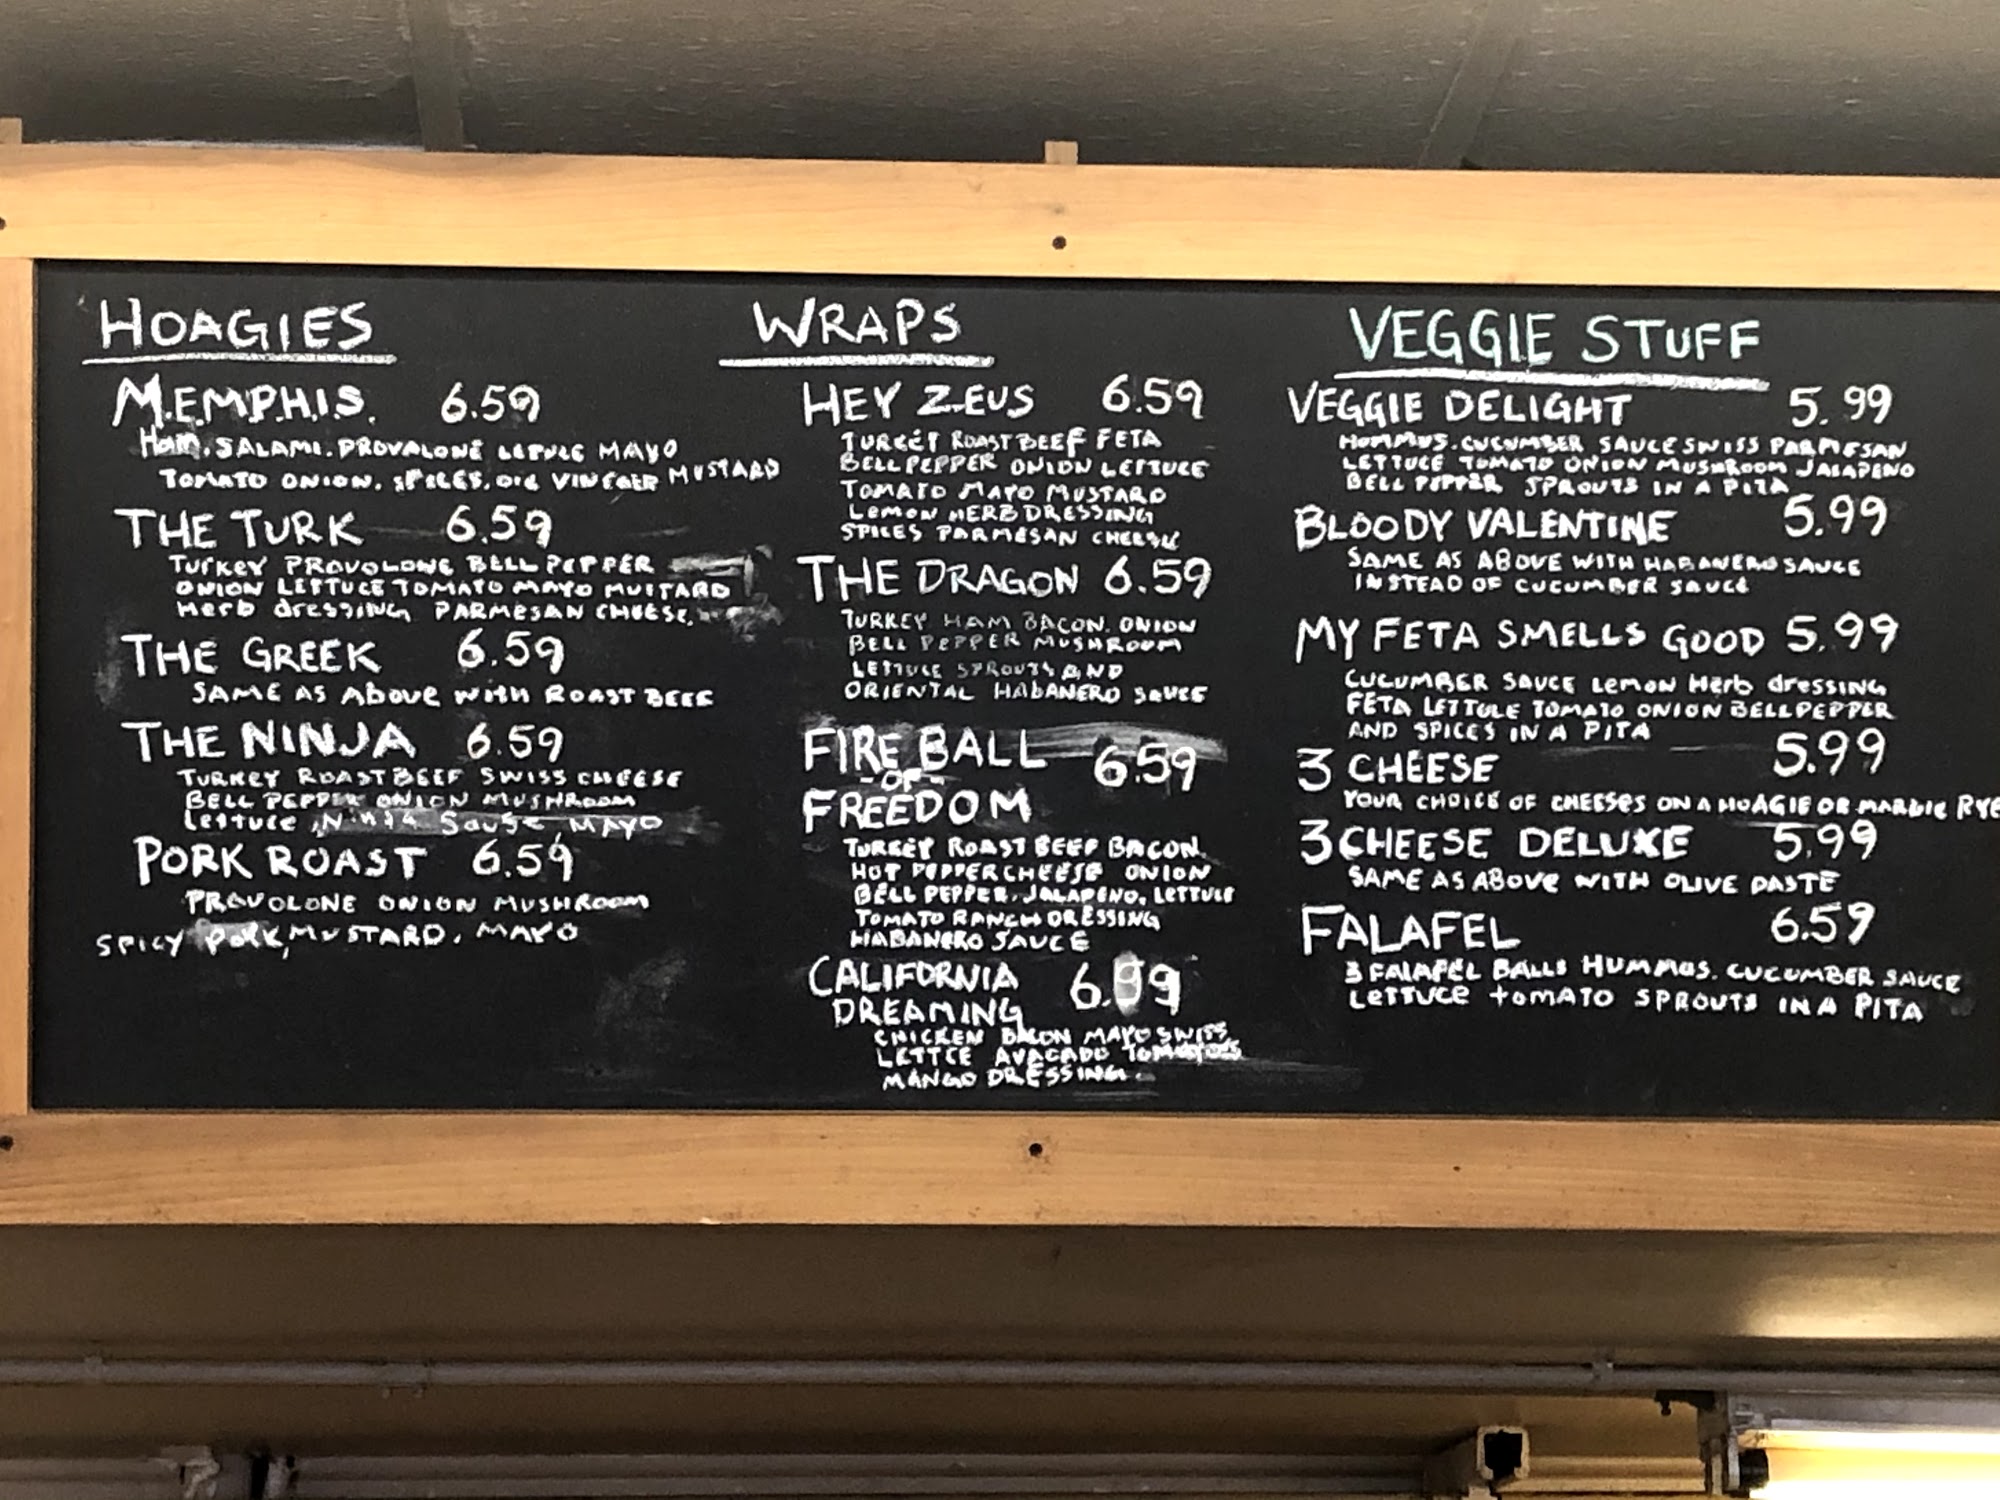 HOAGIES
M.E.M.P.H.I.S. 6.59
HAM. SALAMI. PROVALONE LETTUCE MAYO
TOMATO ONION. SPICES. OIL VINEGER MUSTARD
THE TURK 6.59
TURKEY PROVOLONE BELL PEPPER
ONION LETTUCE TOMATO MAYO MUSTARD
Herb dressing PARMESAN CHEESE.
THE GREEK 6.59
SAME AS ABOVE WITH ROAST BEEF
THE NINJA 6.59
TURKEY ROAST BEEF SWISS CHEESE
BELL PEPPER ONION MUSHROOM
LETTUCE Ninja Sauce MAYO
PORK ROAST 6.59
PROVOLONE ONION MUSHROOM
SPICY PORK, MUSTARD, MAYO
WRAPS
HEY ZEUS 6.59
TURKEY ROAST BEEF FETA
BELL PEPPER ONION LETTUCE
TOMATO MAYO MUSTARD
LEMON HERB DRESSING
SPICES PARMESAN CHEESE
THE DRAGON 6.59
TURKEY HAM BACON. ONION
BELL PEPPER MUSHROOM
LETTUCE SPROUTS AND
ORIENTAL HABANERO SAUCE
FIRE BALL 6.59
-OF-
FREEDOM
TURKEY ROAST BEEF BACON
HOT PEPPER CHEESE ONION
BELL PEPPER. JALAPENO. LETTUCE
TOMATO RANCH DRESSING
HABANERO SAUCE
CALIFORNIA 6.99
DREAMING
CHICKEN BACON MAYO SWISS
LETTCE AVACADO
MANGO DRESSING.
VEGGIE STUFF
VEGGIE DELIGHT 5.99
HUMMUS. CUCUMBER SAUCE SWISS PARMESAN
LETTUCE TOMATO ONION MUSHROOM JALAPENO
BELL PEPPER SPROUTS IN A PITA
BLOODY VALENTINE 5.99
SAME AS ABOVE WITH HABANERO SAUCE
INSTEAD OF CUCUMBER SAUCE
MY FETA SMELLS GOOD 5.99
CUCUMBER SAUCE Lemon Herb dressing
FETA LETTUCE TOMATO ONION BELL PEPPER
AND SPICES IN A PITA
3 CHEESE 5.99
YOUR CHOICE OF CHEESES ON A HOAGIE OR MARBLE RYE
3 CHEESE DELUXE 5.99
SAME AS ABOVE WITH OLIVE PASTE
FALAFEL 6.59
3 FALAFEL BALLS HUMMUS. CUCUMBER SAUCE
LETTUCE TOMATO SPROUTS IN A PITA